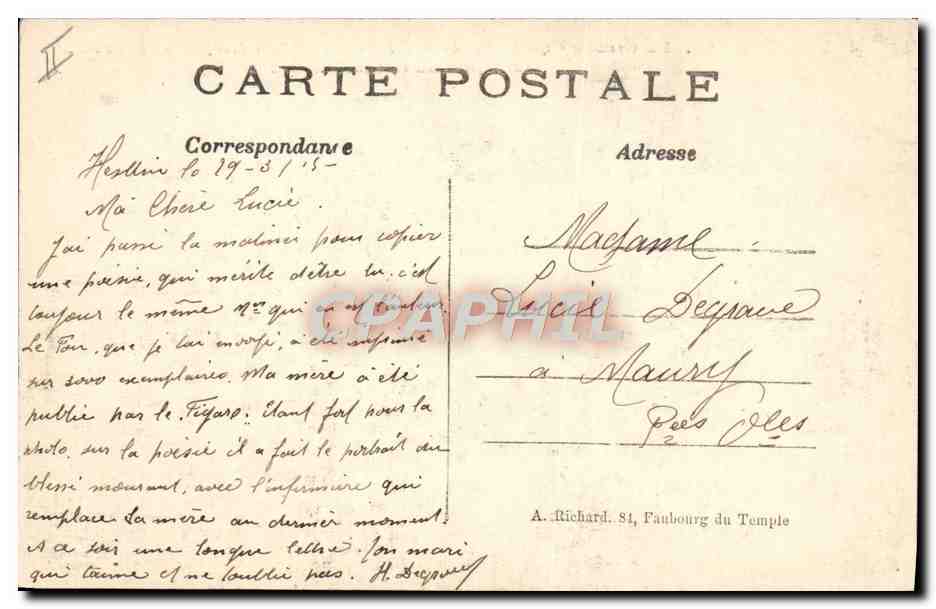 II
CARTE POSTALE
Correspondance
Adresse
Hesdin le 29-3/15-
Ma Chère Lucie.
J'ai passé la matinée pour copier
une poésie, qui mérite d'être lu. c'est
toujour le même Mr qui en est l'auteur.
Le Fou, que je t'ai envoyé, a été imprimé
sur 5000 exemplaires. Ma mère a été
publié par le Figaro. Etant fort pour la
photo, sur la poésie il a fait le portrait du
blessé mourant, avec l'infirmière qui
remplace la mère au dernier moment.
A ce soir une longue lettre. Ton mari
qui t'aime et ne t'oublie pas. H. Degrave
Madame
Lucie Degrave
à Maury
Pees Oles
A. Richard. 84, Faubourg du Temple
CPAPHIL